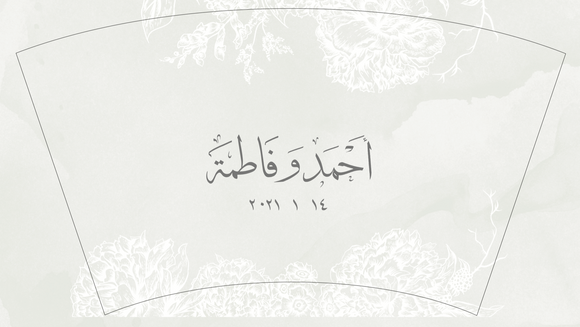 أحمد و فاطمة
١٤ ١ ٢٠٢١